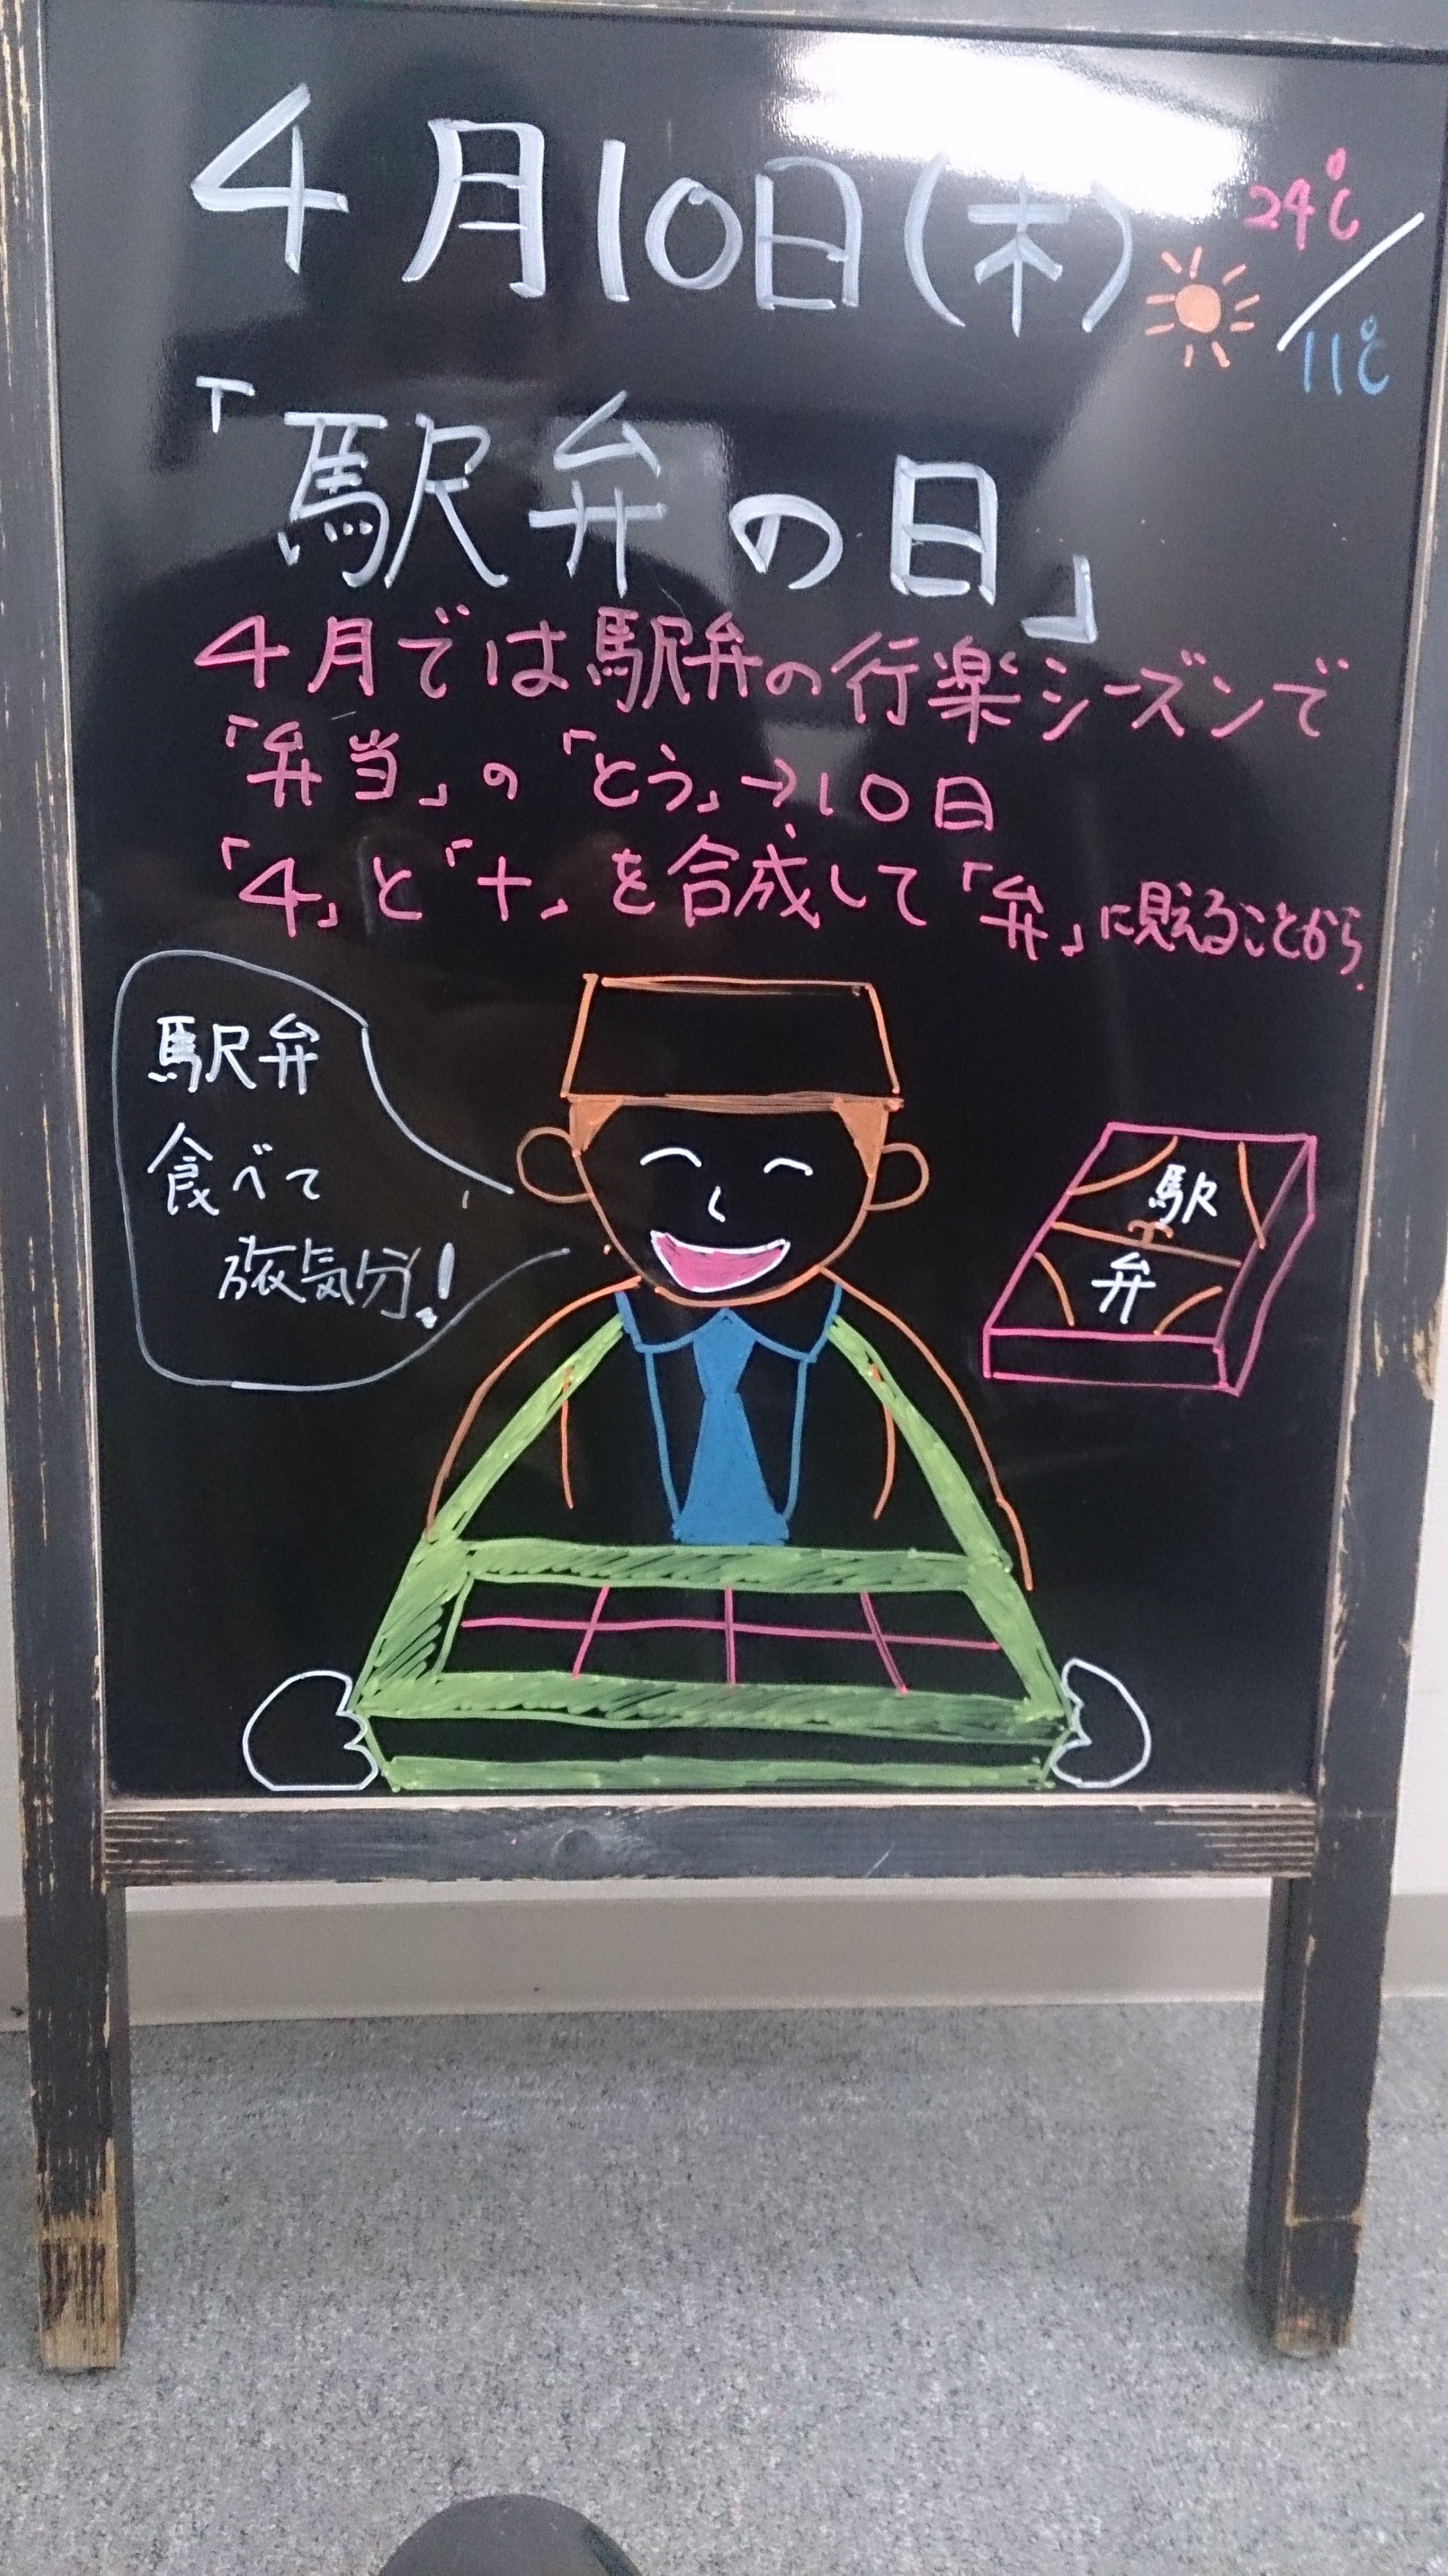 4月10日(木)
24℃/11℃
「駅弁の日」
4月では駅弁の行楽シーズンで
「弁当」の「とう」→10日
「4」と「十」を合成して「弁」に見えることから.
駅弁
食べて
旅気分!
駅
弁